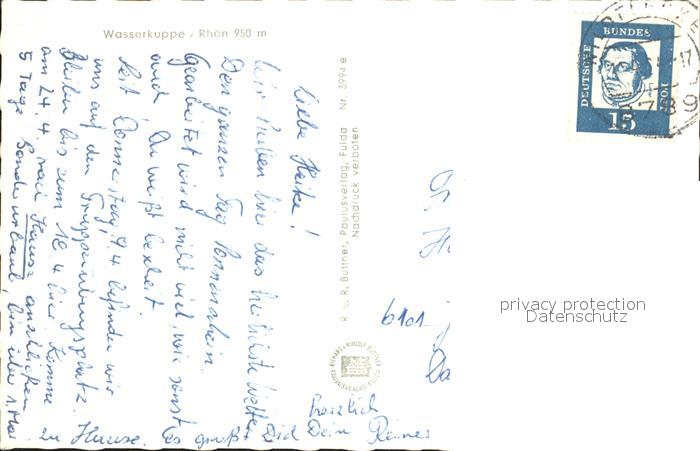 Wasserkuppe / Rhön 950 m
DEUTSCHE
BUNDES
POST
15
Liebe Heike!
Wir haben hier das herrlichste Wetter
Den ganzen Tag Sonnenschein.
Gearbeitet wird nicht viel, wie sonst
auch, Du weißt bescheid.
Seit Donnerstag 9.4 befinden wir
uns auf den Truppenübungsplatz.
Bleiben bis zum 18.4 hier. Komme
am 24.4. nach Hause anschließen
5 Tage Sonderurlaub, bis über 1. Mai
zu Hause. Es grüßt Dich Dein Reiner
herzlich
R. u. R. Büttner, Paulusverlag, Fulda Nr. 3994 e
Nachdruck verboten
6101
privacy protection
Datenschutz